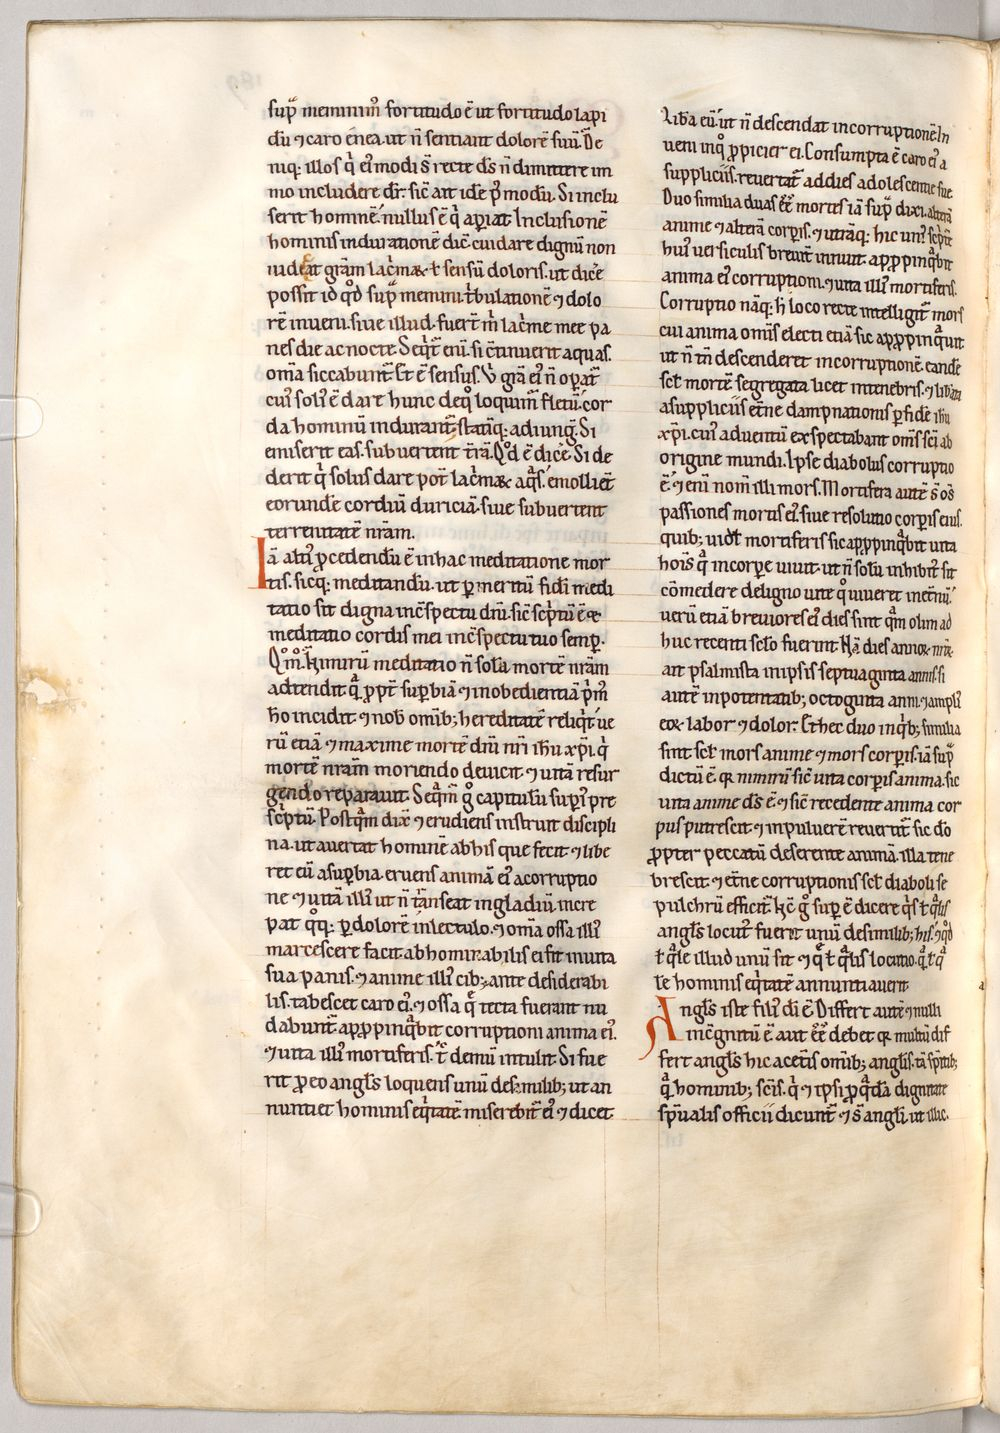 sup̄ meminim᷒ fortitudo ē ut fortitudo lapi
dū ⁊ caro ēnea. ut n̄ sentiant dolorē suū. De
niq; illos q̇ ei᷒modi s̄ recte d̄s n̄ dimittere im
mo includere dr̄. sic̄ ait idē p̄ modū. Si inclu
serit hominē. nullus ē q̇ apiat. Inclusionē
hominis indurationē dic̄. cui dare dignū non
uideat gr̄am lac̄maꝝ. ł sensū doloris. ut dic̄e
possit id qd̄ sup̄ memini. t̄bulationē ⁊ dolo
rē inueni. siue illud. fuer̄t m̄ lac̄me mee pa
nes die ac nocte. Seq̄t̄ enī. si c̄tinuerit aquas.
om̄a siccabunt̄. Et ē sensus. Ꝟ gr̄a ei᷒ n̄ opat̄
cui᷒ soli᷒ ē dare hunc de q̊ loquim̄ fletū. cor
da hominū indurant̄. statīq; adiunḡ. Si
emiserit eas. subuertent t̄rā. Qd̄ ē dic̄e. Si de
derit q̇ solus dare pot̄ lac̄maꝝ aq̄s. emolliet̄
eorundē cordiū duriciā. siue subuertent
terrenitatē nr̄am.
Iā alti᷒ ꝓcedendū ē in hac meditatione mor
tis. sicq; meditandū. ut ꝑ meritū fidei medi
tatio sit digna in c̄spectu dn̄i. sic̄ sc̄ptū ē ⁊
meditatio cordis mei in c̄spectu tuo semp.
Qm̄. h̄ nimirū meditatio n̄ solā mortē nr̄am
adtendit. q̄ ꝓpt̄ supbiā ⁊ inobedientiā p̄m᷒
ho incidit. ⁊ nob̄ omīb; hereditatē reliq̇t. ue
rū etiā ⁊ maxime mortē dn̄i nr̄i ih̄u xp̄i. q̇
mortē nr̄am moriendo deuicit. ⁊ uitā resur
gendo reparauit. Seq̄m̄ g̊ capitulū supi᷒ pre
sc̄ptū. Postq̄m dix̄ ⁊ erudiens instruit discipli
na. ut auertat hominē ab his que fecit. ⁊ libe
ret eū a supbia. eruens animā ei᷒ a corruptio
ne ⁊ uitā illi᷒ ut n̄ t̄nseat in gladiū. incre
pat q̊q; ꝑ dolorē in lectulo. ⁊ om̄a ossa illi᷒
marcescere facit. abhominabilis ei fit in uita
sua panis. ⁊ anime illi᷒ cib; ante desiderabi
lis. tabescet caro ei᷒. ⁊ ossa q̄ tecta fuerant nu
dabunt̄. appinq̄bit corruptioni anima ei᷒.
⁊ uita illi᷒ mortiferis. t̄ demū intulit. Si fue
rit ꝓ eo angl̄s loquens unū de similib; ut an
nuntiet hominis eq̇tatē. miserebit̄ ei᷒ ⁊ dicet.
Lib̄a eū. ut n̄ descendat in corruptionē. In
ueni in q̊ ꝓpicier ei. Consumpta ē caro ei᷒ a
suppliciis. reuertat̄ ad dies adolescentie sue.
Duo similia duas ēē mortes iā sup̄ dixi. alterā
anime ⁊ alterā corpis. ⁊ utrāq; hic uni᷒ sc̄pt̄
hui᷒ uersiculis breuit̄ innuit. appinq̄bit
anima ei᷒ corruptioni. ⁊ uita illi᷒ mortiferis.
Corruptio nāq; h̄ loco recte intelligit̄ mors
cui anima omīs electi etiā sic appinq̄uit
ut n̄ tn̄ descenderet in corruptionē. eandē
scl̄ mortē segregata licet in tenebris. ⁊ lib̄ata
a suppliciis et̄ne dampnationis p fidē ih̄u
xp̄i. cui᷒ aduentū exspectabant om̄s sc̄i ab
origine mundi. Ipse diabolus corruptio
ē. ⁊ enī nom̄ illi mors. Mortifera autē s̄ oīs
passiones mortis ei᷒. siue resolutio corpis eius.
quib; uidl̄ mortiferis sic appinq̄bit uita
hois q̄ in corpe uiuit. ut n̄ solū inhibit̄ sit
cōmedere de ligno uite q̊ uiueret in et̄nū.
uerū etiā breuiores ei᷒ dies sint q̄m olim ad
huc recenti sclo fuerint. Nā dies annoꝝ nr̄oꝝ
ait psalmista in ipsis septuaginta annis. si
autē in potentatib; octoginta anni. ⁊ ampli᷒
eoꝝ labor ⁊ dolor. Et hec duo inq̇b; similia
sint scl̄ mors anime ⁊ mors corpis. iā sup̄
dictū ē. qꝛ nimirū sic̄ uita corpis anima. sic
uita anime d̄s ē. ⁊ sic̄ recedente anima cor
pus putrescit. ⁊ in puluerē reuertit̄. sic d̄o
ꝓpter peccatū deserente animā. illa tene
brescit. ⁊ et̄ne corruptionis scl̄ diaboli se
pulchrū efficit̄. Hc̄ g̊ sup̄ ē dicere q̇s ł q̄lis
angl̄s locut᷒ fuerit unū de similib; his. ⁊ qd̄
ł q̄le illud unū sit. ⁊ q̄ ł q̄lis locutio. q̄ ł q̄
le hominis eq̇tatē annuntiauerit.
Angl̄s iste fili᷒ di ē. Differt autē ⁊ nulli
inc̄gnitū ē aut ēē debet qꝛ multū dif
fert angl̄s hic a cet̄is omīb; angl̄is. tā sp̄itib;
q̄ hominib; scīs. q̇ ⁊ ipsi ꝓ q̄dā dignitate
sp̄ualis officii dicunt̄ ⁊ s̄ angl̄i. ut illic.